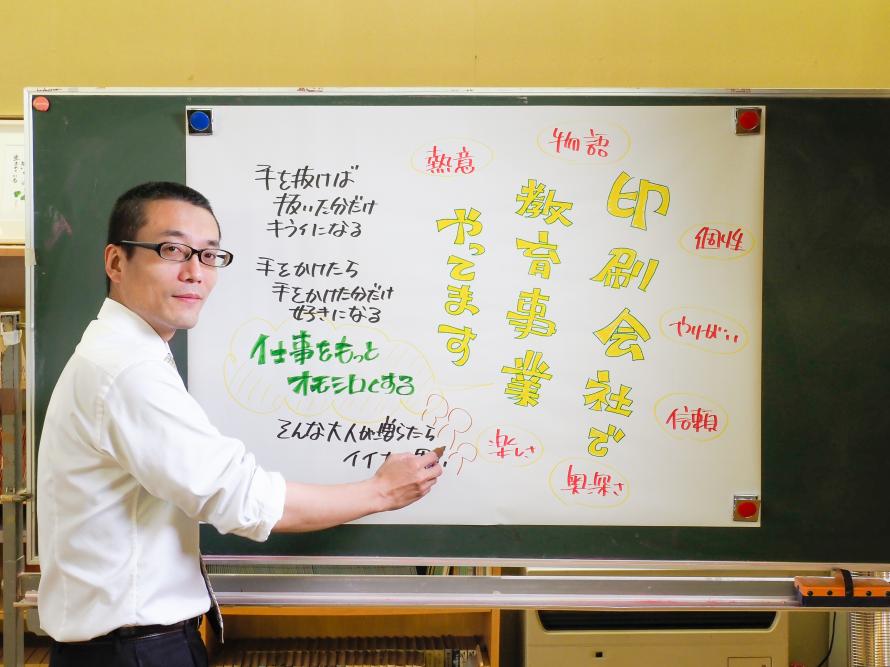 印刷会社で
教育事業
やってます
物語
熱意
個性
やりがい
信頼
奥深さ
楽しさ
手を抜けば
抜いた分だけ
キライになる
手をかけたら
手をかけた分だけ
好きになる
仕事をもっと
オモシロくする
そんな大人が増えたら
イイナ